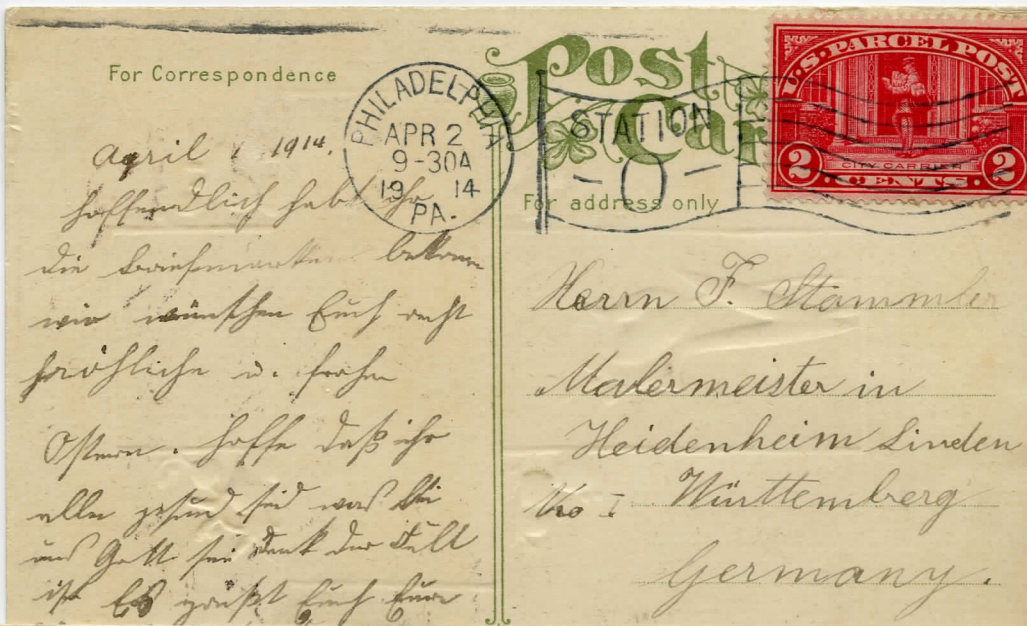 Post
Card
For Correspondence
For address only
PHILADELPHIA
APR 2
9-30A
19 14
PA.
STATION
O
U.S. PARCEL POST
CITY CARRIER
2 CENTS 2
April 1 1914.
hoffendlich habt ihr
die Briefmarken bekom
wir wünschen Euch recht
fröhliche u. frohe
Ostern. hoffe daß ihr
alle gesund seid was bei
uns Gott sei Dank der Fall
ist Es grüßt Euch Eure
Herrn F. Stammler
Malermeister in
Heidenheim Linden
No I Württemberg
Germany.